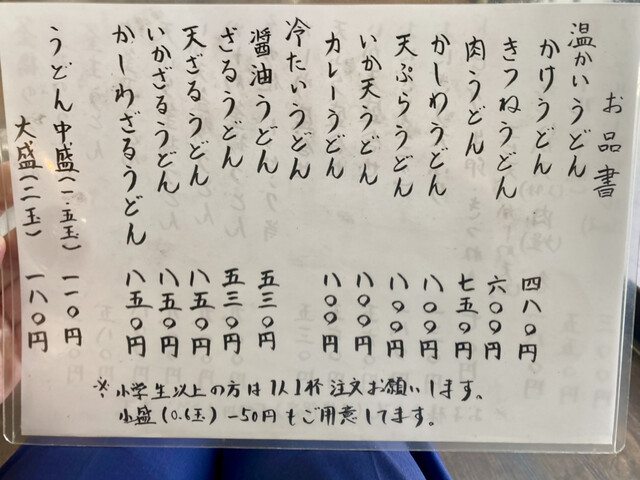 お品書
温かいうどん
かけうどん 四八〇円
きつねうどん 六〇〇円
肉うどん 七五〇円
かしわうどん 八〇〇円
天ぷらうどん 八〇〇円
いか天うどん 八〇〇円
カレーうどん 八〇〇円
冷たいうどん
醤油うどん 五三〇円
ざるうどん 五三〇円
天ざるうどん 八五〇円
いかざるうどん 八五〇円
かしわざるうどん 八五〇円
うどん中盛(一.五玉) 一一〇円
大盛(二玉) 一八〇円
※小学生以上の方は1人1杯注文お願いします。
小盛(0.6玉)-50円もご用意してます。